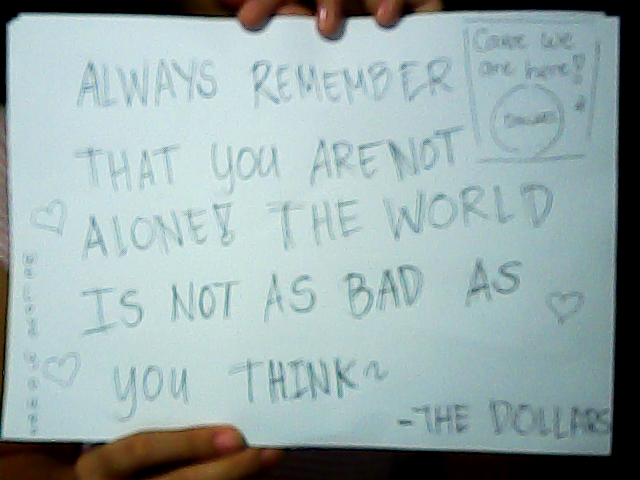 ALWAYS REMEMBER
THAT YOU ARE NOT
ALONE! THE WORLD
IS NOT AS BAD AS
YOU THINK~
-THE DOLLARS
Cause we
are here!